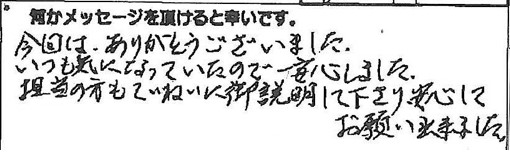 何かメッセージを頂けると幸いです。
今回は、ありがとうございました。
いつも気になっていたので安心しました。
担当の方もていねいに御説明して下さり、安心して
お願い出来ました。